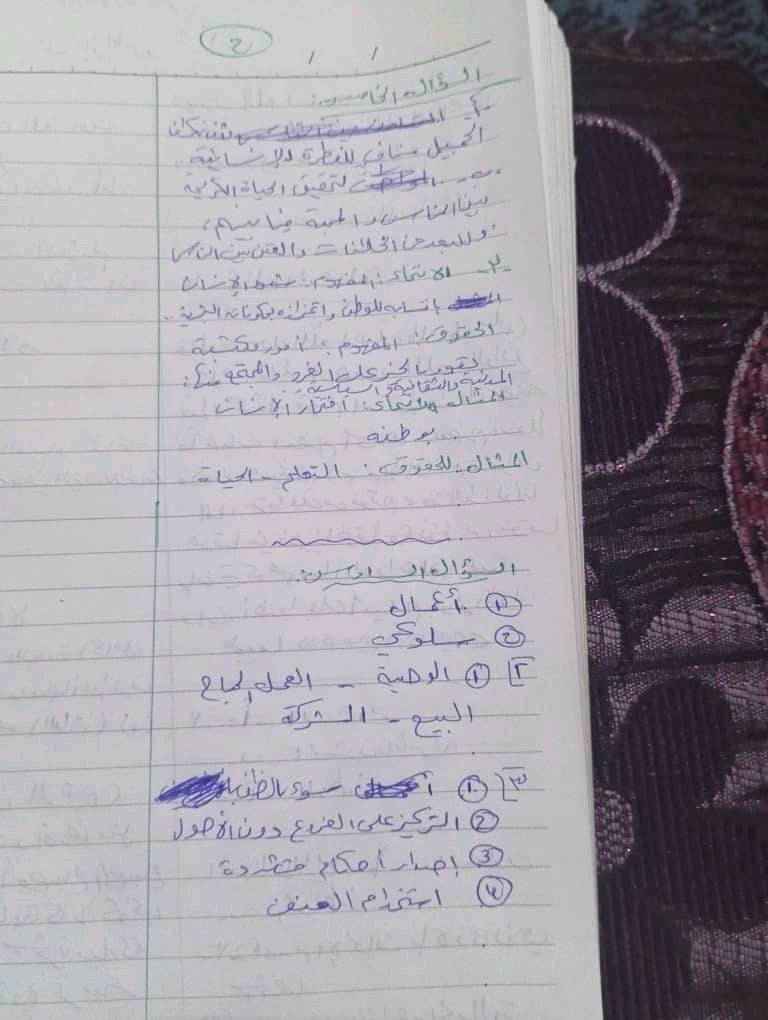 2
السؤال الخامس:
الجميل منافي للفطرة الإنسانية
لتحقيق الحياة الكريمة
بين الناس والمحبة فيما بينهم،
وللبعد عن الخلافات والفتن بين الناس
٢- الانتماء: المفهوم: شعور الإنسان
بانتسابه للوطن واعتزازه بمكوناته
الحقوق: المفهوم: أمور مكتسبة
على الفرد والمجتمع منها:
المدنية والثقافية والسياسية
المثال للانتماء: افتخار الإنسان
بوطنه
المثال للحقوق: التعلم - الحياة
السؤال السادس:
① أعمال
② سلوكي
٢] ① الوصية - العمل المباح
البيع - الشركة
٣] ① سوء الظن
② التركيز على الفروع دون الأصول
③ إصدار أحكام متشددة
④ استخدام العنف